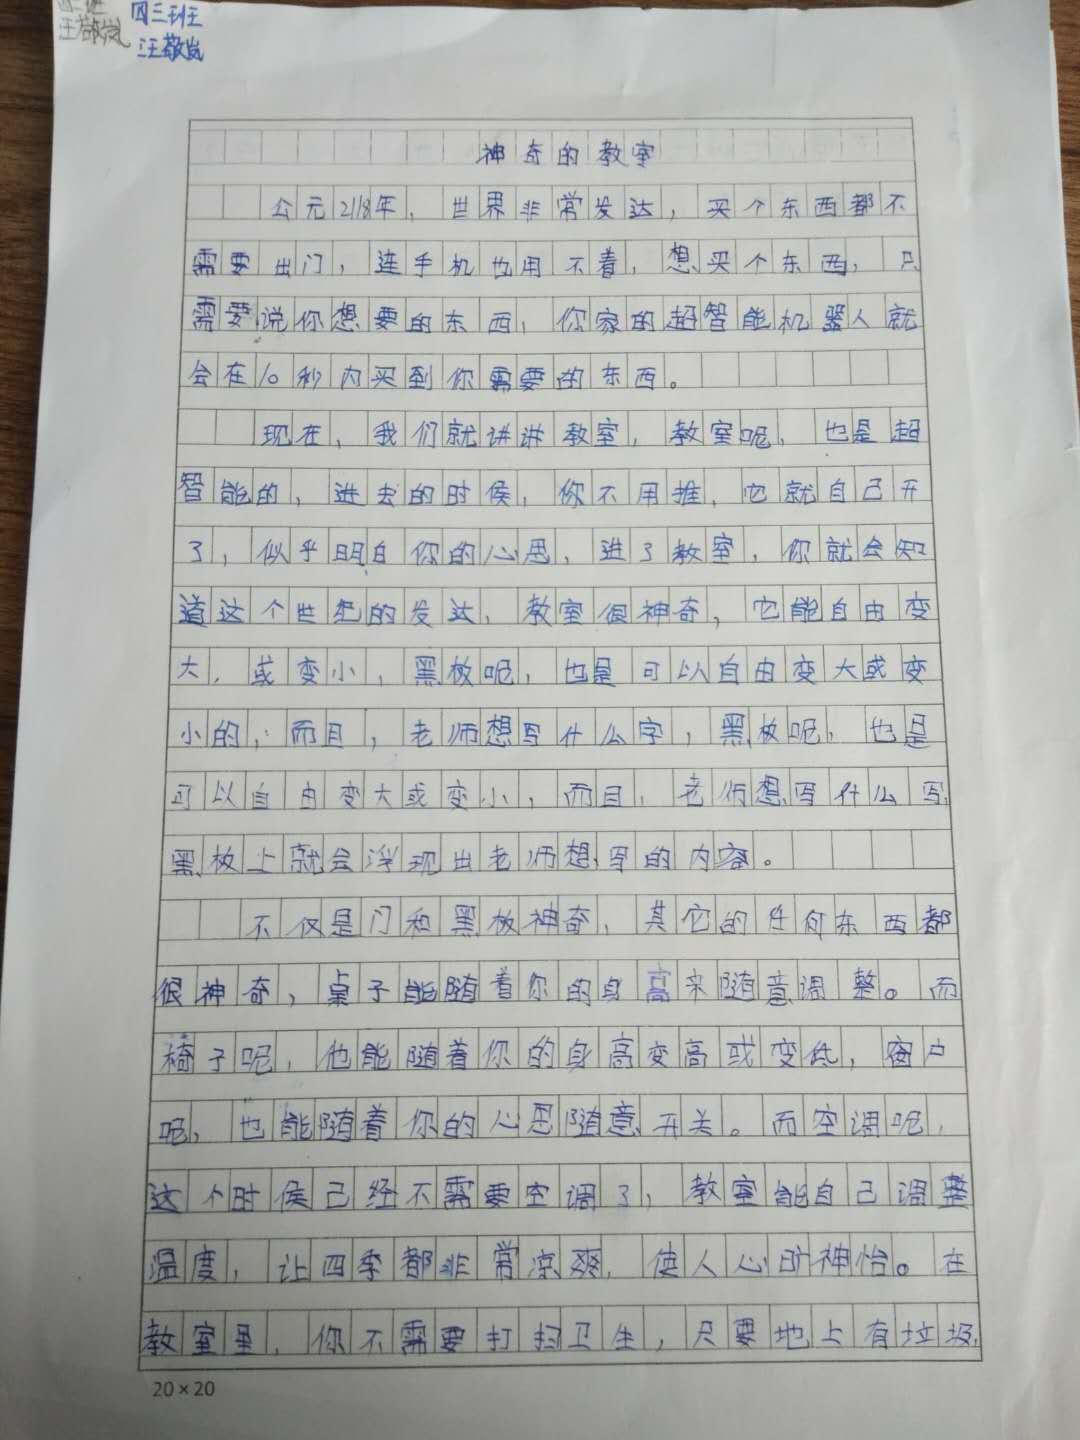 四三班
汪敬岚
四三班
汪敬岚
神奇的教室
公元2118年，世界非常发达，买个东西都不
需要出门，连手机也用不着，想买个东西，只
需要说你想要的东西，你家的超智能机器人就
会在10秒内买到你需要的东西。
现在，我们就讲讲教室，教室呢，也是超
智能的，进去的时侯，你不用推，它就自己开
了，似乎明白你的心思，进了教室，你就会知
道这个世纪的发达，教室很神奇，它能自由变
大，或变小，黑板呢，也是可以自由变大或变
小的，而且，老师想写什么字，黑板呢，也是
可以自由变大或变小，而且，老师想写什么写
黑板上就会浮现出老师想写的内容。
不仅是门和黑板神奇，其它的任何东西都
很神奇，桌子能随着你的身高来随意调整。而
椅子呢，他能随着你的身高变高或变低，窗户
呢，也能随着你的心思随意开关。而空调呢，
这个时侯已经不需要空调了，教室能自己调整
温度，让四季都非常凉爽，使人心旷神怡。在
教室里，你不需要打扫卫生，只要地上有垃圾，
20×20